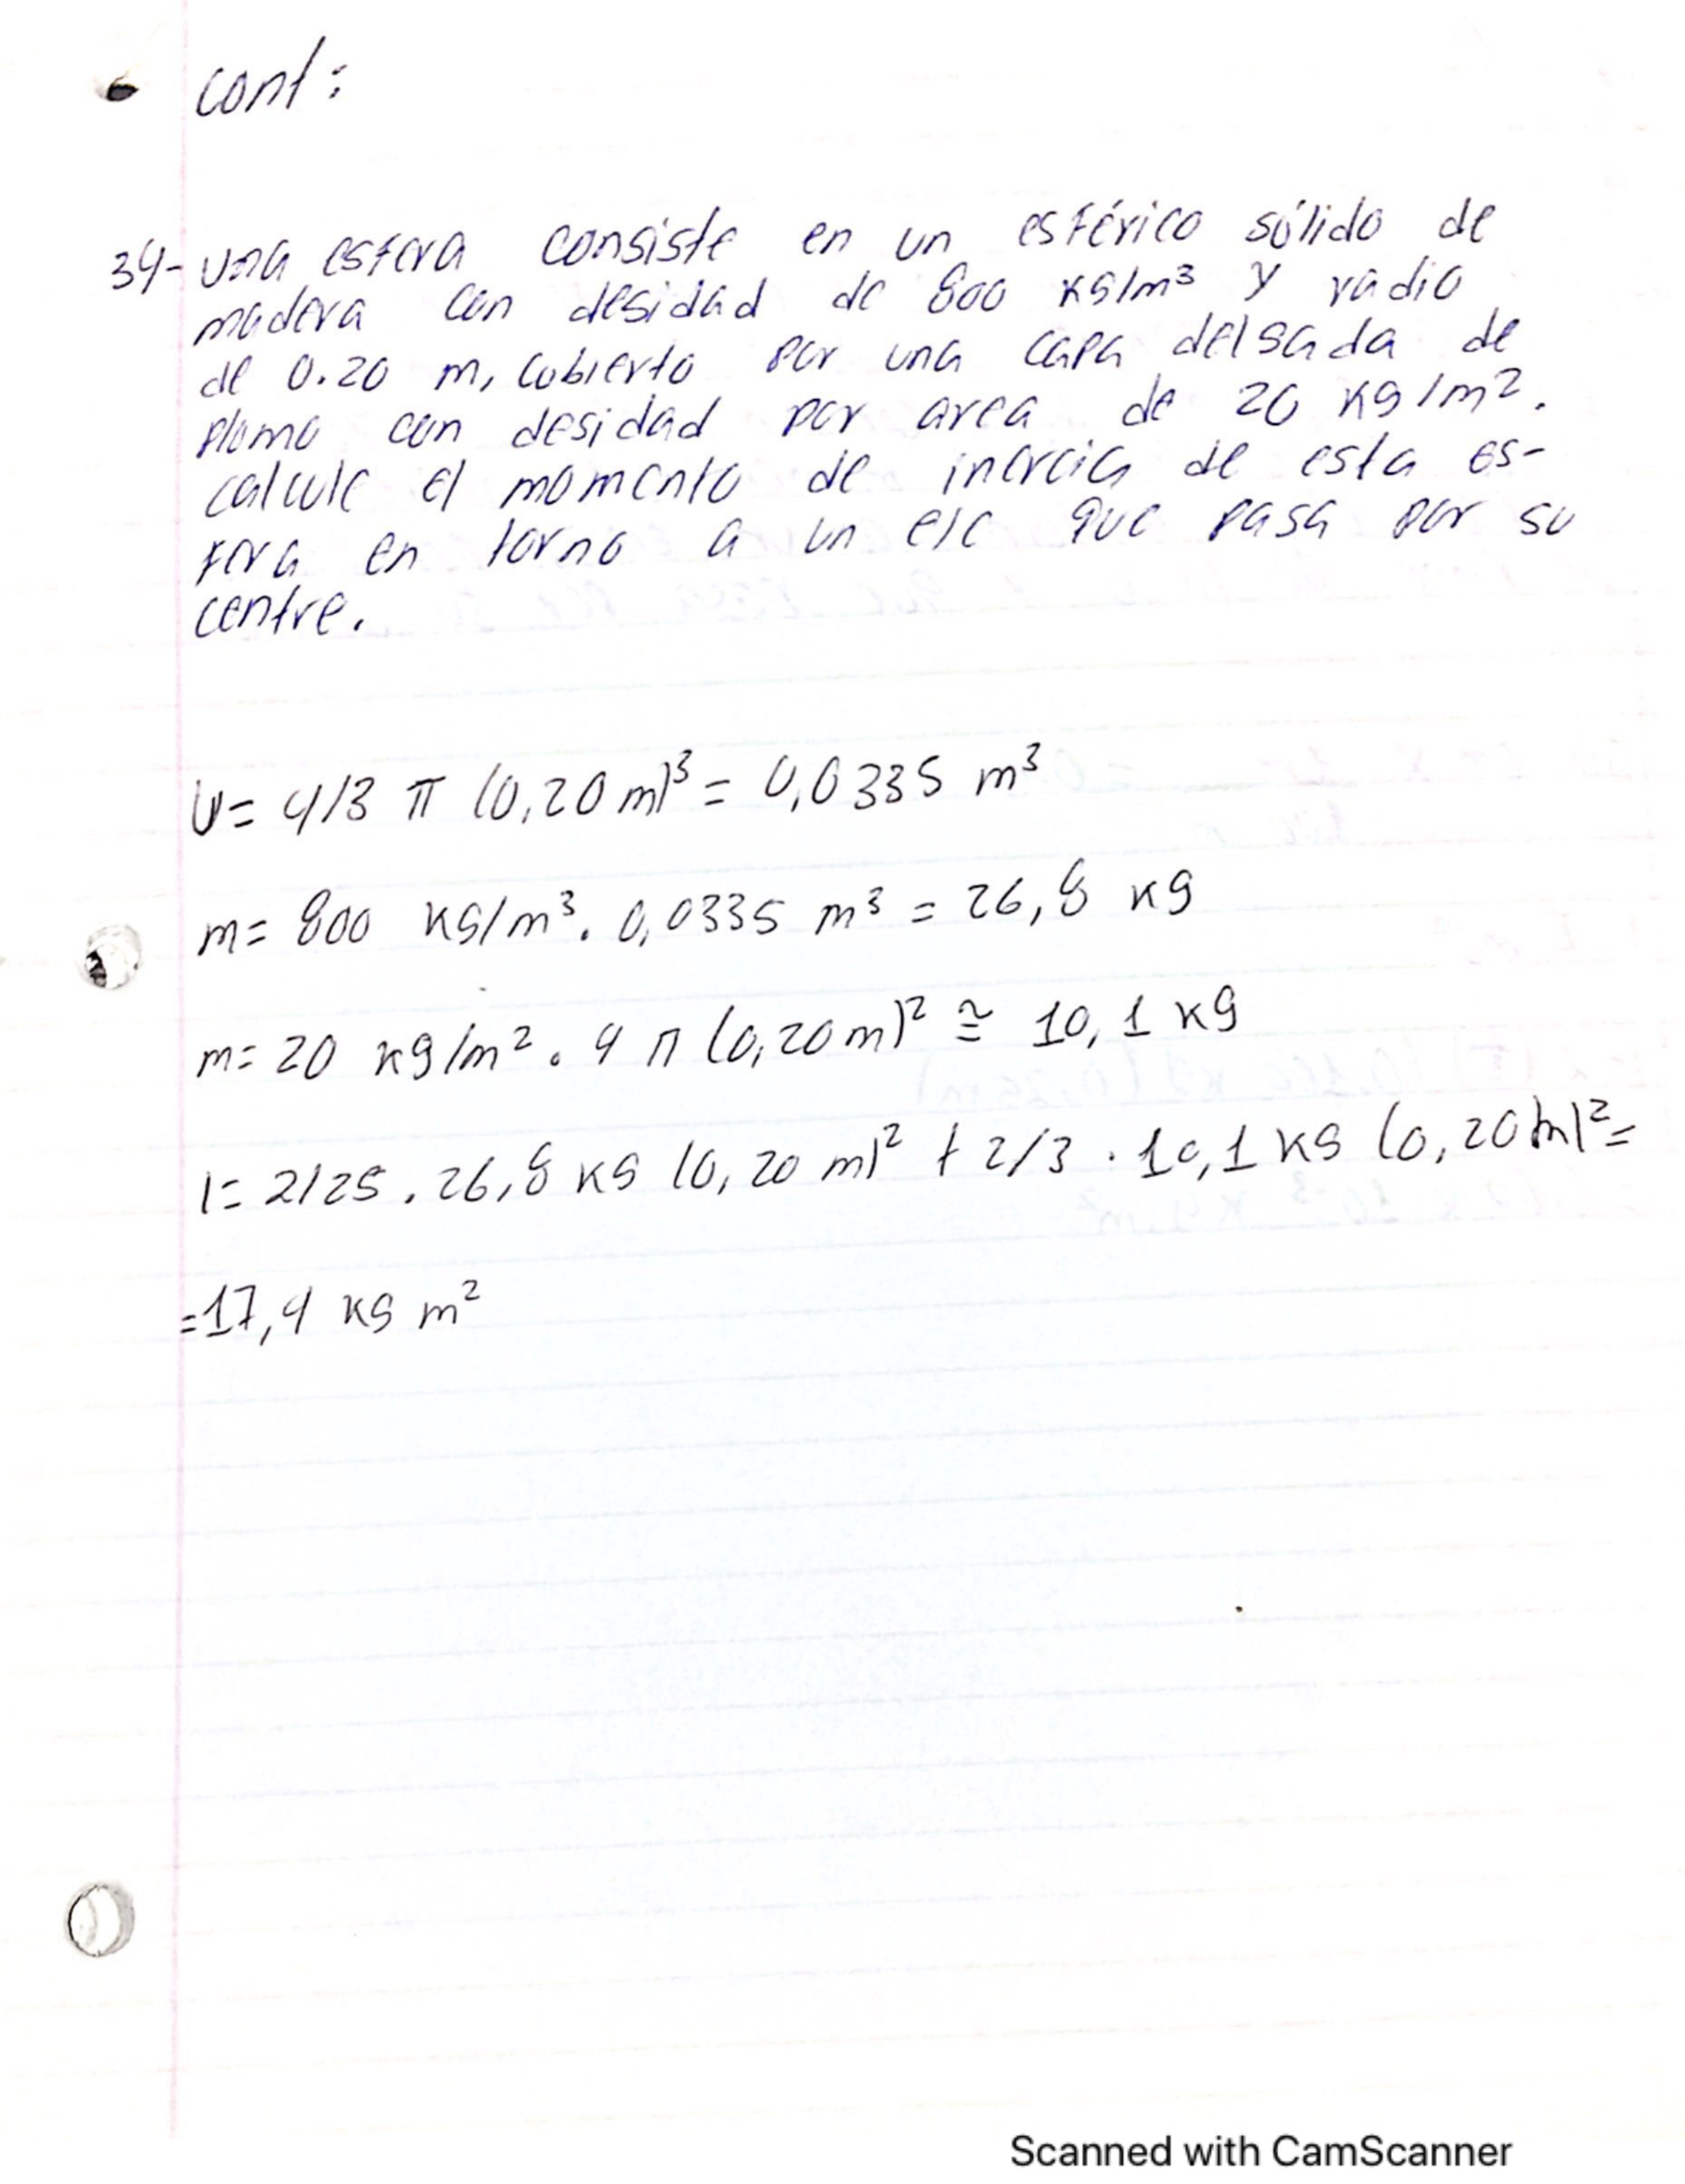 cont:
34- una esfera consiste en un esférico sólido de
madera con desidad de 800 kg/m³ y radio
de 0.20 m, cubierto por una capa delgada de
plomo con desidad por area de 20 kg/m².
calcule el momento de inercia de esta es-
fera en torno a un eje que pasa por su
centre.
V= 4/3 π (0,20 m)³ = 0,0335 m³
m= 800 kg/m³. 0,0335 m³ = 26,8 kg
m= 20 kg/m². 4 π (0,20 m)² ≅ 10,1 kg
I= 2/25 . 26,8 kg (0,20 m)² + 2/3 . 10,1 kg (0,20 m)² =
=17,4 kg m²
Scanned with CamScanner